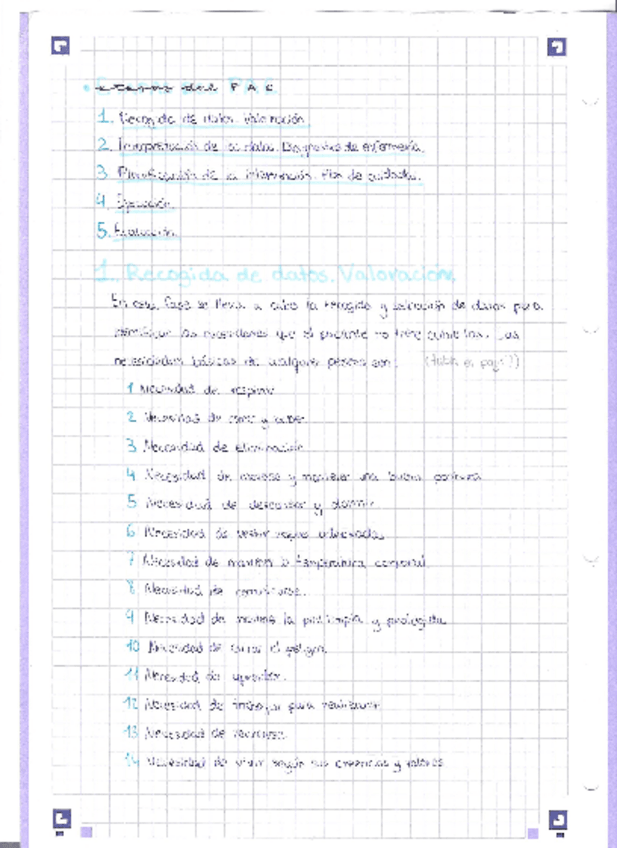 • Etapas del P A E
1. Recogida de datos. Valoración.
2. Interpretación de los datos. Diagnóstico de enfermería.
3. Planificación de la intervención. Plan de cuidados.
4. Ejecución.
5. Evaluación.
1. Recogida de datos. Valoración.
En esta fase se lleva a cabo la recogida y valoración de datos para
identificar las necesidades que el paciente no tiene cubiertas. Las
necesidades básicas de cualquier persona son:
1 Necesidad de respirar
2 Necesidad de comer y beber
3 Necesidad de eliminación
4 Necesidad de moverse y mantener una buena postura
5 Necesidad de descansar y dormir
6 Necesidad de vestir ropas adecuadas
7 Necesidad de mantener la temperatura corporal
8 Necesidad de comunicarse.
9 Necesidad de mantener la piel limpia y protegida
10 Necesidad de evitar el peligro
11 Necesidad de aprender.
12 Necesidad de trabajar para realizarse
13 Necesidad de recrearse
14 Necesidad de vivir según sus creencias y valores